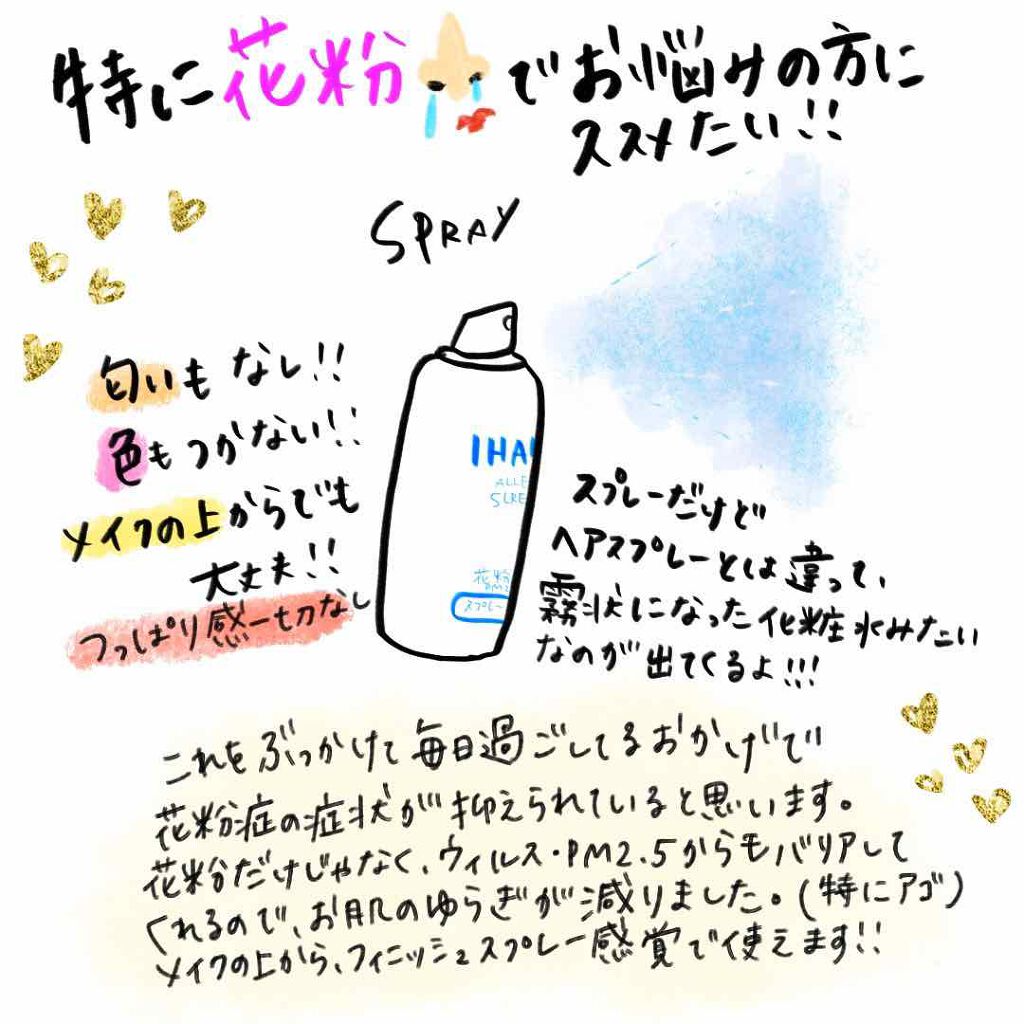 特に花粉でお悩みの方に
ススメたい!!
SPRAY
匂いもなし!!
色もつかない!!
メイクの上からでも
大丈夫!!
つっぱり感一切なし
IHA
ALLE
SCRE
花粉
PM2
スプレー
スプレーだけど
ヘアスプレーとは違って、
霧状になった化粧水みたい
なのが出てくるよ!!!
これをぶっかけて毎日過ごしてるおかげで
花粉症の症状が抑えられていると思います。
花粉だけじゃなく、ウィルス・PM2.5からもバリアして
くれるので、お肌のゆらぎが減りました。(特にアゴ)
メイクの上から、フィニッシュスプレー感覚で使えます!!